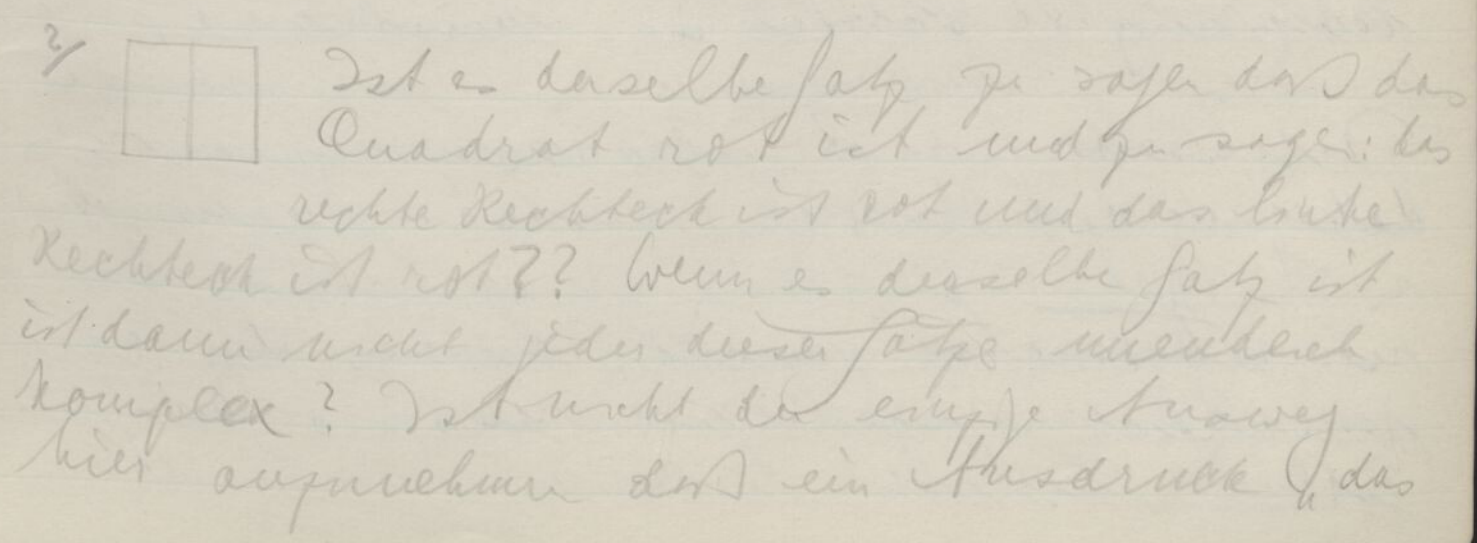 ?/ Ist es derselbe Satz zu sagen daß das
Quadrat rot ist und zu sagen: das
rechte Rechteck ist rot und das linke
Rechteck ist rot?? Wenn es derselbe Satz ist
ist dann nicht jeder dieser Sätze unendlich
komplex? Ist nicht der einzige Ausweg
hier anzunehmen daß ein Ausdruck „das